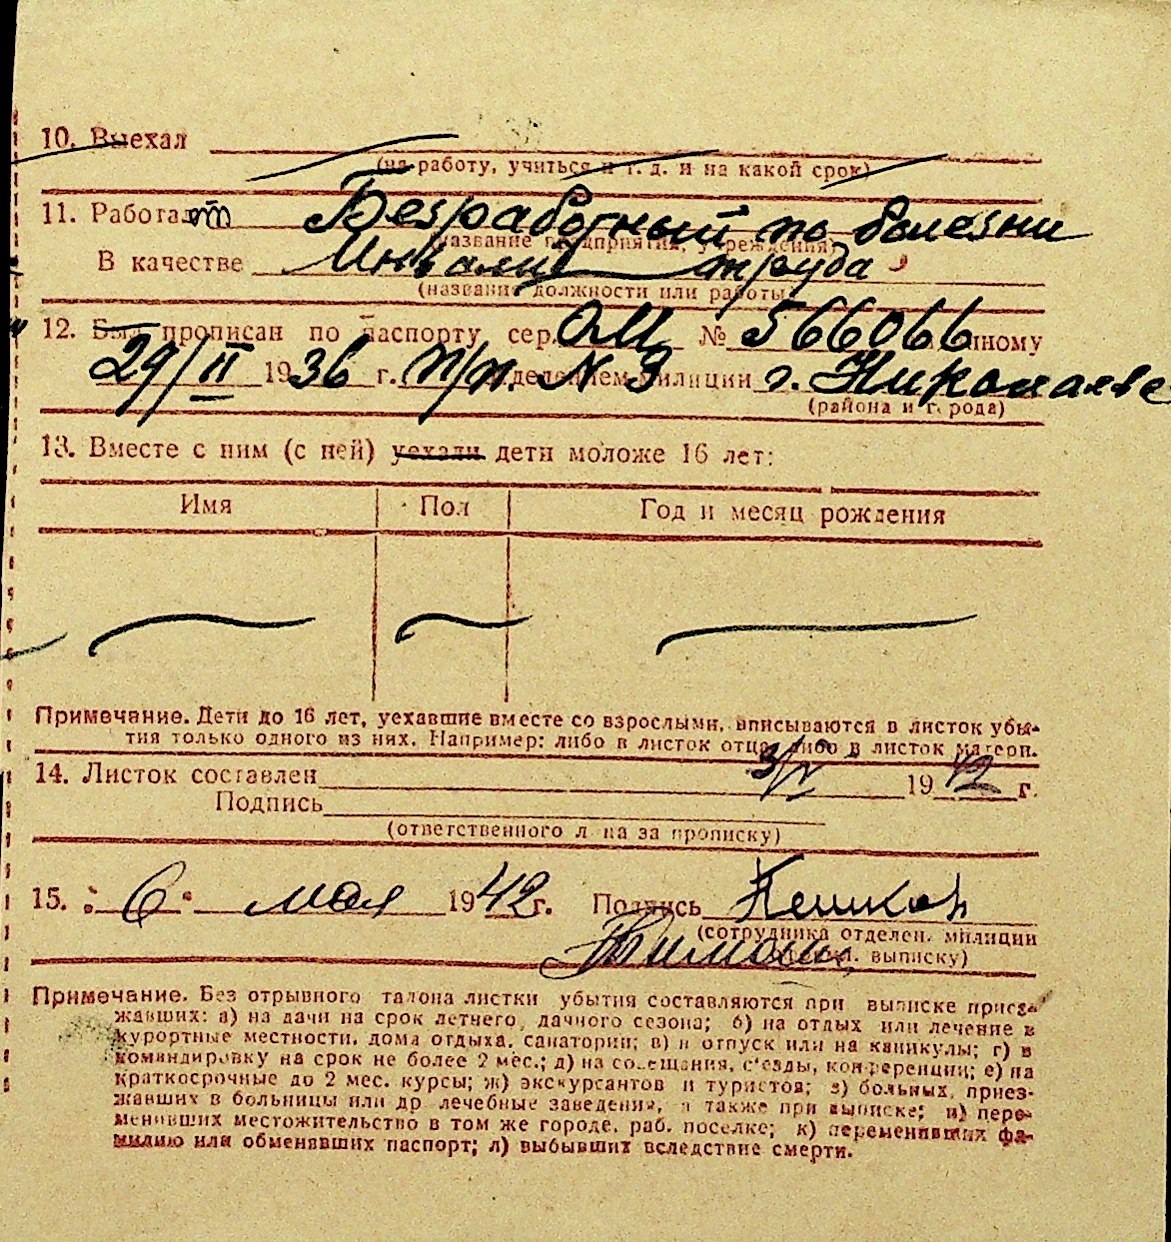 10. Выехал
(на работу, учиться и т. д. и на какой срок)
11. Работает Безработный по болезни
(название предприятия, учреждения)
В качестве Инвалид труда
(название должности или работы)
12. Был прописан по паспорту сер. ОМ № 566066 нному
29/II 1936 г. п/п. N 3 отделением милиции г. Николаеве
(района и города)
13. Вместе с ним (с ней) уехали дети моложе 16 лет:
Имя Пол Год и месяц рождения
Примечание. Дети до 16 лет, уехавшие вместе со взрослыми, вписываются в листок убы-
тия только одного из них. Например: либо в листок отца, либо в листок матери.
14. Листок составлен 3/V 1942 г.
Подпись
(ответственного лица за прописку)
15. " 6 " мая 1942 г. Подпись Пешков
(сотрудника отделен. милиции
выписку)
Примечание. Без отрывного талона листки убытия составляются при выписке приез-
жавших: а) на дачи на срок летнего, дачного сезона; б) на отдых или лечение в
курортные местности, дома отдыха, санатории; в) в отпуск или на каникулы; г) в
командировку на срок не более 2 мес.; д) на совещания, с'езды, конференции; е) на
краткосрочные до 2 мес. курсы; ж) экскурсантов и туристов; з) больных, приез-
жавших в больницы или др лечебные заведения, а также при выписке; и) пере-
менивших местожительство в том же городе, раб. поселке; к) переменивших фа-
милию или обменявших паспорт; л) выбывших вследствие смерти.